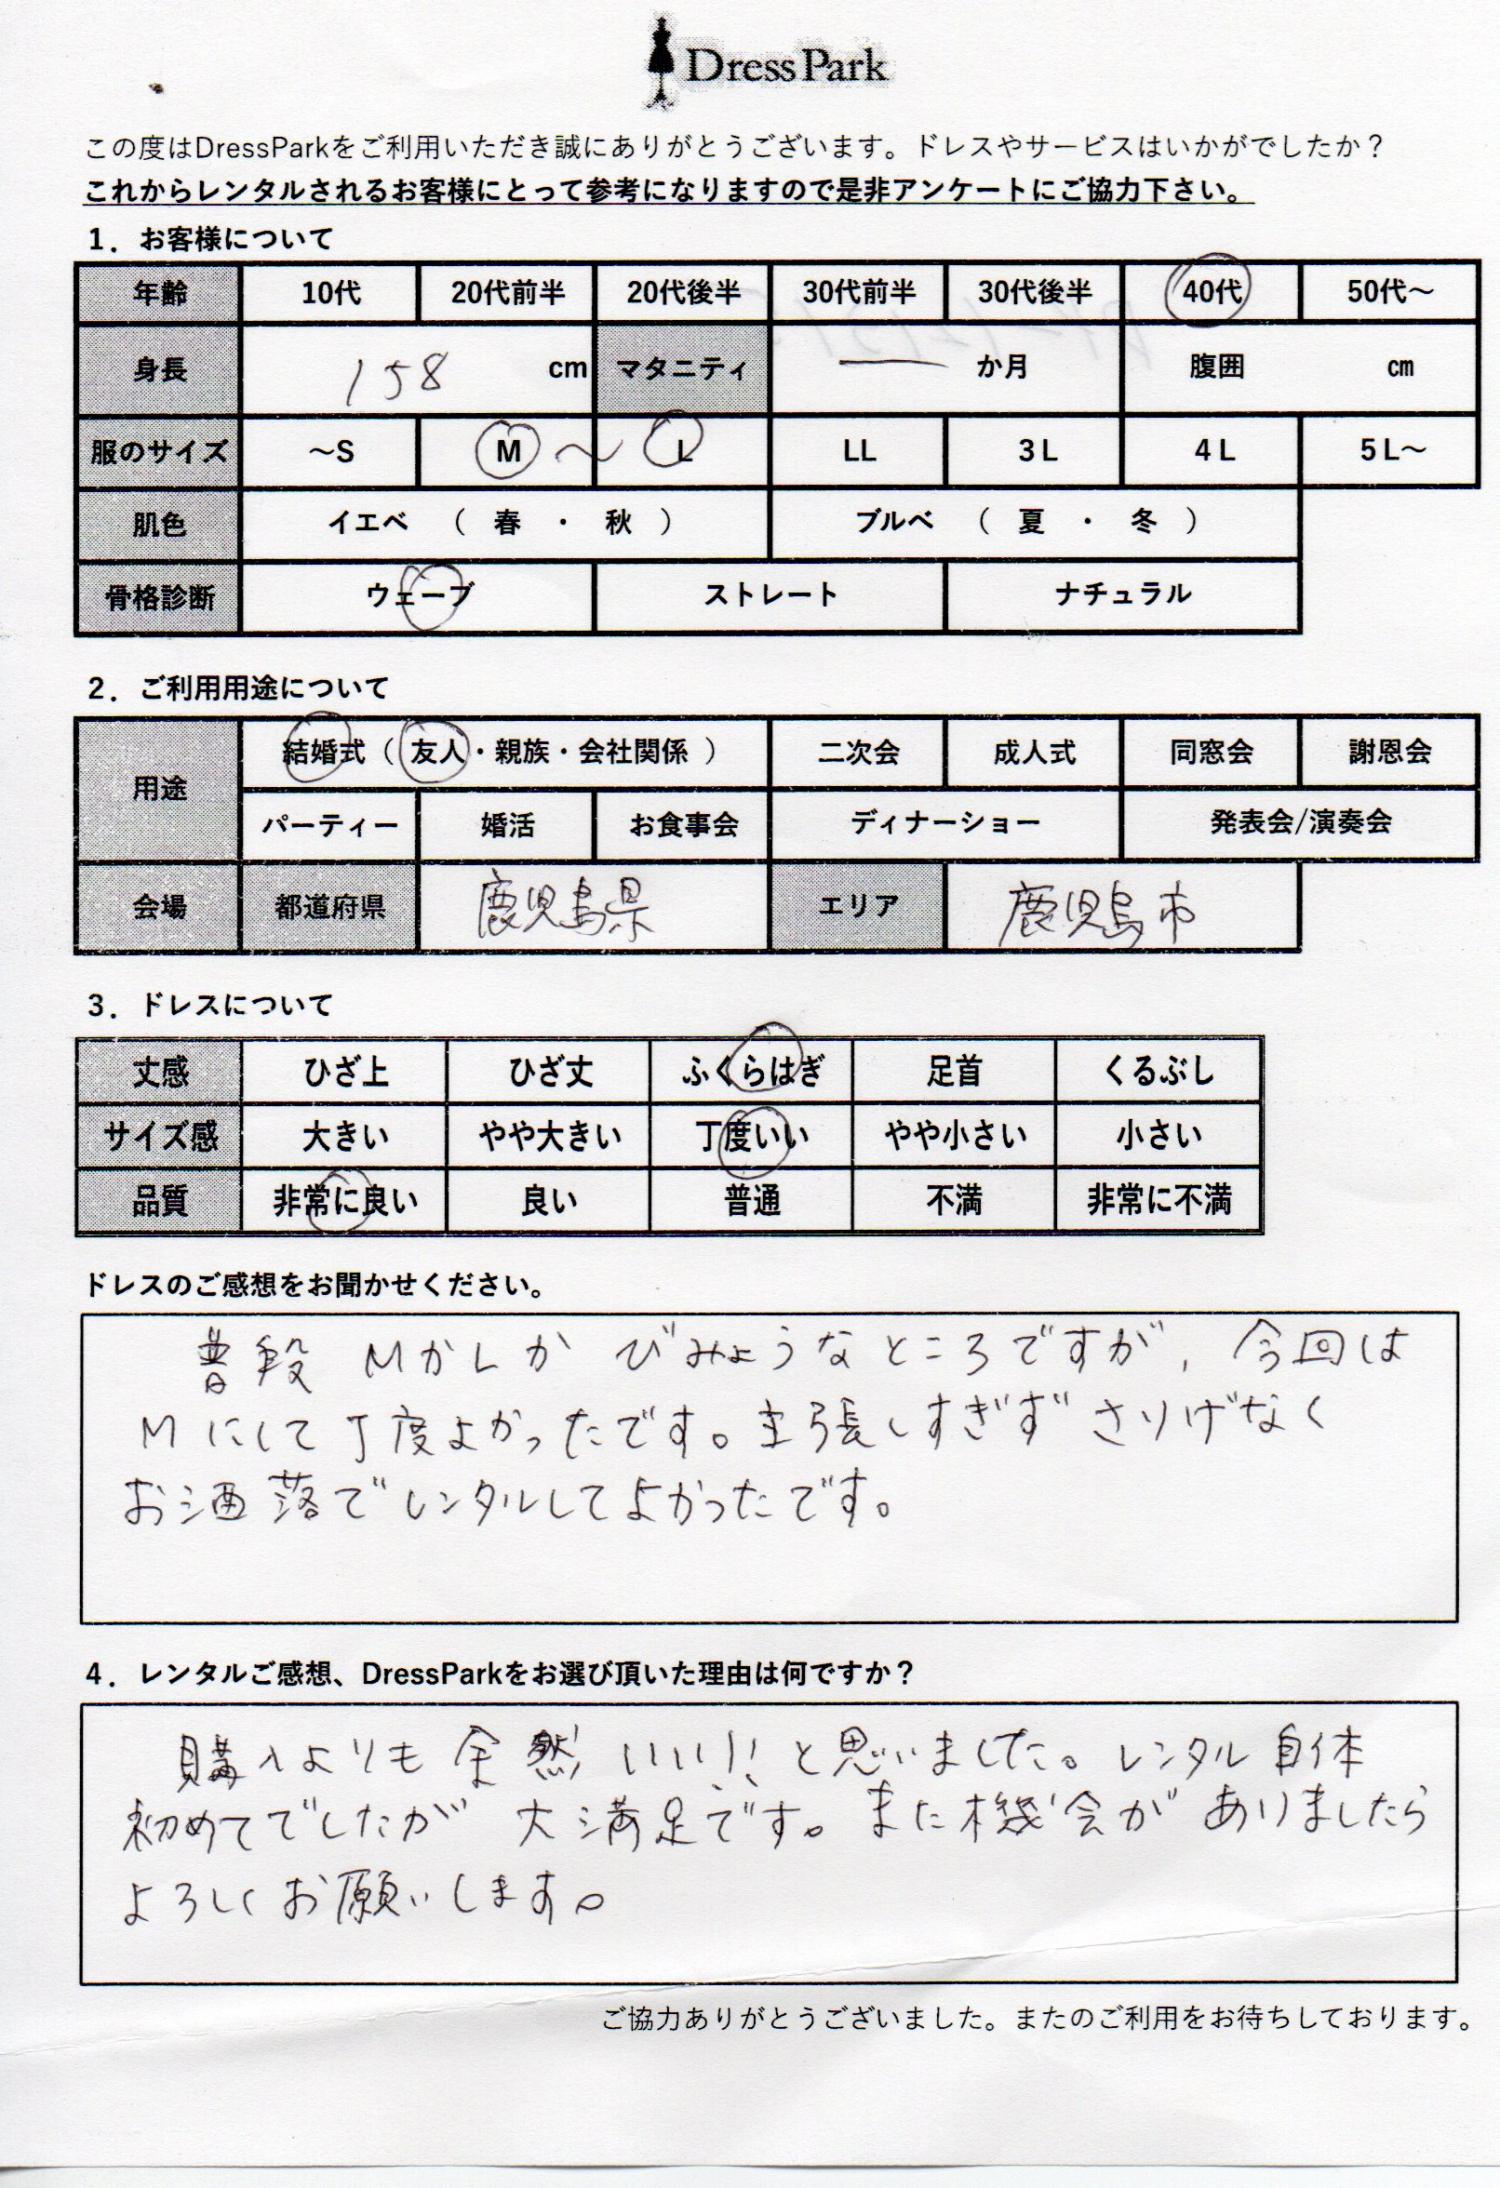 Dress Park
この度はDressParkをご利用いただき誠にありがとうございます。ドレスやサービスはいかがでしたか？
これからレンタルされるお客様にとって参考になりますので是非アンケートにご協力下さい。
1．お客様について
年齢 10代 20代前半 20代後半 30代前半 30代後半 40代 50代～
身長 158 cm マタニティ か月 腹囲 ㎝
服のサイズ ～S M ～ L LL 3L 4L 5L～
肌色 イエベ （ 春 ・ 秋 ） ブルベ （ 夏 ・ 冬 ）
骨格診断 ウェーブ ストレート ナチュラル
2．ご利用用途について
用途 結婚式（ 友人・親族・会社関係 ） 二次会 成人式 同窓会 謝恩会
パーティー 婚活 お食事会 ディナーショー 発表会/演奏会
会場 都道府県 鹿児島県 エリア 鹿児島市
3．ドレスについて
丈感 ひざ上 ひざ丈 ふくらはぎ 足首 くるぶし
サイズ感 大きい やや大きい 丁度いい やや小さい 小さい
品質 非常に良い 良い 普通 不満 非常に不満
ドレスのご感想をお聞かせください。
普段 MかLか びみょうなところですが、今回は
Mにして丁度よかったです。主張しすぎず さりげなく
お洒落でレンタルしてよかったです。
4．レンタルご感想、DressParkをお選び頂いた理由は何ですか？
購入よりも全然いい!! と思いました。レンタル自体
初めてでしたが 大満足です。また機会がありましたら
よろしくお願いします。
ご協力ありがとうございました。またのご利用をお待ちしております。